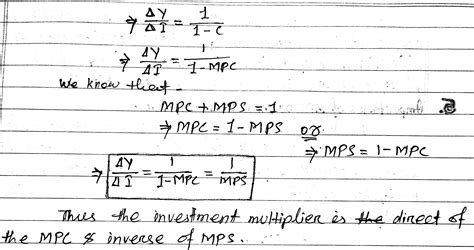 ⇒ ΔY/ΔI = 1/1-C
⇒ ΔY/ΔI = 1/1-MPC
We know that -
MPC + MPS = 1
⇒ MPC = 1 - MPS or
⇒ MPS = 1 - MPC
⇒ ΔY/ΔI = 1/1-MPC = 1/MPS
Thus the investment multiplier is the direct of
the MPC & inverse of MPS.